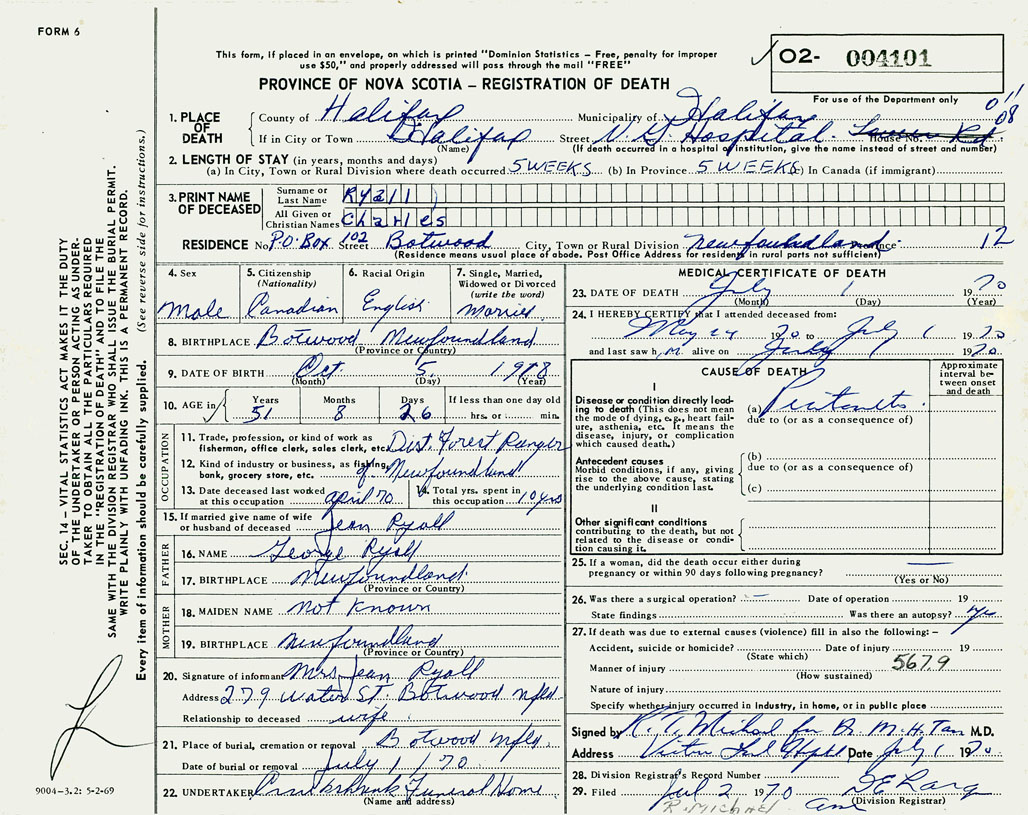 FORM 6
This form, if placed in an envelope, on which is printed "Dominion Statistics – Free, penalty for improper
use $50," and properly addressed will pass through the mail "FREE"
PROVINCE OF NOVA SCOTIA – REGISTRATION OF DEATH
O2- 004101
For use of the Department only
011
08
1. PLACE OF DEATH
County of Halifax Municipality of Halifax
If in City or Town Halifax Street V G Hospital House No.
(Name) (If death occurred in a hospital or institution, give the name instead of street and number)
2. LENGTH OF STAY (in years, months and days)
(a) In City, Town or Rural Division where death occurred 5 WEEKS (b) In Province 5 WEEKS (c) In Canada (if immigrant)
3. PRINT NAME OF DECEASED
Surname or Last Name Ryall
All Given or Christian Names Charles
RESIDENCE No. P.O. Box 102 Street Botwood City, Town or Rural Division Newfoundland Province 12
(Residence means usual place of abode. Post Office Address for residents in rural parts not sufficient)
4. Sex
Male
5. Citizenship
(Nationality)
Canadian
6. Racial Origin
English
7. Single, Married,
Widowed or Divorced
(write the word)
Married
8. BIRTHPLACE Botwood Newfoundland
(Province or Country)
9. DATE OF BIRTH Oct. 5 1918
(Month) (Day) (Year)
10. AGE in
Years Months Days If less than one day old
51 8 26 hrs. or min.
OCCUPATION
11. Trade, profession, or kind of work as
fisherman, office clerk, sales clerk, etc. Dist. Forest Ranger
12. Kind of industry or business, as fishing,
bank, grocery store, etc. of Newfoundland
13. Date deceased last worked
at this occupation April 70
14. Total yrs. spent in
this occupation 10 yrs
15. If married give name of wife
or husband of deceased Jean Ryall
FATHER
16. NAME George Ryall
17. BIRTHPLACE Newfoundland
(Province or Country)
MOTHER
18. MAIDEN NAME Not Known
19. BIRTHPLACE Newfoundland
(Province or Country)
20. Signature of informant Mrs Jean Ryall
Address 279 Water St Botwood Nfld.
Relationship to deceased wife
21. Place of burial, cremation or removal Botwood Nfld.
Date of burial or removal July 1/70
22. UNDERTAKER Cruikshank Funeral Home
(Name and address)
MEDICAL CERTIFICATE OF DEATH
23. DATE OF DEATH July 1 1970
(Month) (Day) (Year)
24. I HEREBY CERTIFY that I attended deceased from:
May 24 70 to July 1 1970
and last saw h im alive on July 1 1970
CAUSE OF DEATH
Approximate
interval be-
tween onset
and death
I
Disease or condition directly lead-
ing to death (This does not mean
the mode of dying, e.g., heart fail-
ure, asthenia, etc. It means the
disease, injury, or complication
which caused death.)
(a) Peritonitis
due to (or as a consequence of)
Antecedent causes
Morbid conditions, if any, giving
rise to the above cause, stating
the underlying condition last.
(b)
due to (or as a consequence of)
(c)
II
Other significant conditions
contributing to the death, but not
related to the disease or condi-
tion causing it.
25. If a woman, did the death occur either during
pregnancy or within 90 days following pregnancy? —
(Yes or No)
26. Was there a surgical operation? — Date of operation 19
State findings Was there an autopsy? yes
27. If death was due to external causes (violence) fill in also the following: –
Accident, suicide or homicide? Date of injury 19
(State which)
5679
Manner of injury
(How sustained)
Nature of injury
Specify whether injury occurred in industry, in home, or in public place
Signed by R. T. Michael for Dr M. H. Tan M.D.
Address Date July 1 1970
28. Division Registrar's Record Number
29. Filed Jul 2 1970
(Division Registrar)
R. MICHAEL
SEC. 14 – VITAL STATISTICS ACT MAKES IT THE DUTY
OF THE UNDERTAKER OR PERSON ACTING AS UNDER-
TAKER TO OBTAIN ALL THE PARTICULARS REQUIRED
IN THE "REGISTRATION OF DEATH" AND TO FILE THE
SAME WITH THE DIVISION REGISTRAR WHO SHALL ISSUE THE BURIAL PERMIT.
WRITE PLAINLY WITH UNFADING INK. THIS IS A PERMANENT RECORD.
Every item of information should be carefully supplied. (See reverse side for instructions.)
9004-3.2: 5-2-69